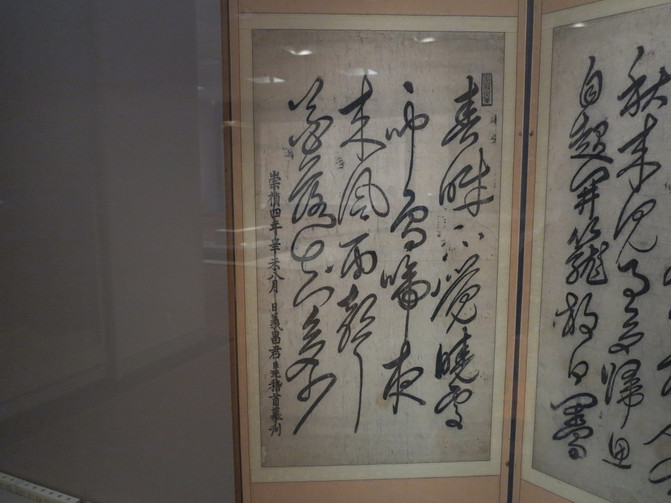 秋來見月多歸思
自起開籠放白鷴
春眠不覺曉處
々聞鳥啼夜
來風雨聲
花落知多少
崇禎四年辛未八月 日義昌君臣珖稽首摹刊